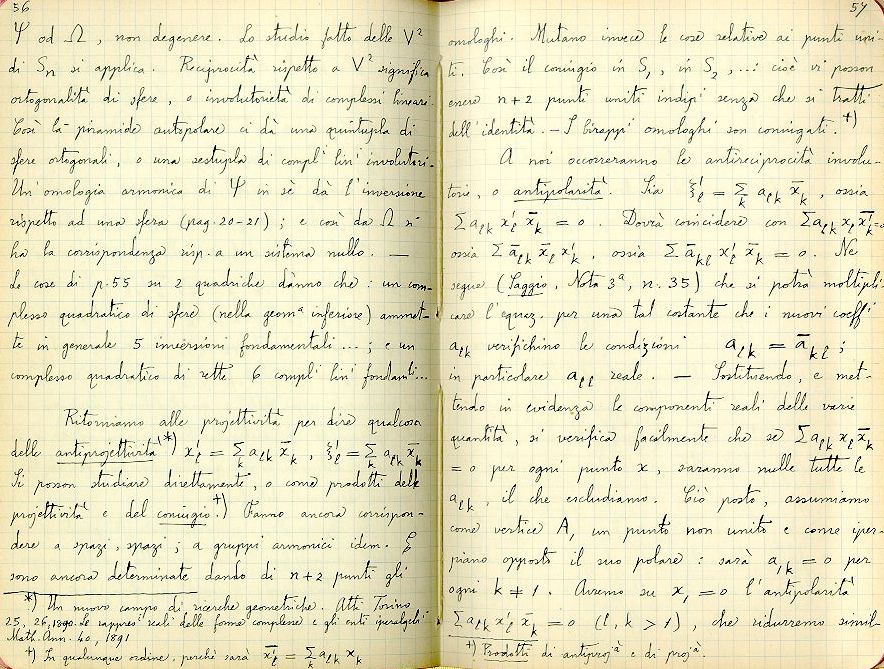 56
Ψ od Ω, non degenere. Lo studio fatto delle V²
di Sₙ si applica. Reciprocità rispetto a V² significa
ortogonalità di sfere, o involutorietà di complessi lineari.
Così la piramide autopolare ci dà una quintupla di
sfere ortogonali, o una sestupla di compl¹ lin¹ involutori.
Un'omologia armonica di Ψ in sè dà l'inversione
rispetto ad una sfera (pag. 20-21); e così da Ω si
ha la corrispondenza risp. a un sistema nullo. —
Le cose di p. 55 su 2 quadriche dànno che: un com-
plesso quadratico di sfere (nella geomᵃ inferiore) ammet-
te in generale 5 inversioni fondamentali...; e un
complesso quadratico di rette 6 compl¹ lin¹ fondam¹¹...
Ritorniamo alle projettività per dire qualcosa
delle antiprojettività*) x'ₗ = Σₖ aₗₖ x̄ₖ, ξ'ₗ = Σₖ aₗₖ x̄ₖ
Si posson studiare direttamente, o come prodotti delle
projettività e del coniugio.†) Fanno ancora corrispon-
dere a spazi, spazi; a gruppi armonici idem. E
sono ancora determinate dando di n+2 punti gli
*) Un nuovo campo di ricerche geometriche. Atti Torino
25, 26, 1890. Le rappresⁱ reali delle forme complesse e gli enti iperalgebⁱ
Math. Ann. 40, 1891
†) In qualunque ordine, perchè sarà x̄'ₗ = Σₖ āₗₖ xₖ
57
omologhi. Mutano invece le cose relative ai punti uni-
ti. Così il coniugio in S₁, in S₂, ...: cioè vi posson
essere n+2 punti uniti indipⁱ senza che si tratti
dell'identità. — I birappⁱ omologhi son coniugati.†)
A noi occorreranno le antireciprocità involu-
torie, o antipolarità. Sia ξ'ₗ = Σₖ aₗₖ x̄ₖ, ossia
Σaₗₖ x'ₗ x̄ₖ = 0. Dovrà coincidere con Σaₗₖ xₗ x̄'ₖ = 0
ossia Σ āₗₖ x̄ₗ x'ₖ, ossia Σ āₖₗ x'ₗ x̄ₖ = 0. Ne
segue (Saggio, Nota 3ᵃ, n. 35) che si potrà moltipli-
care l'equaz. per una tal costante che i nuovi coeffⁱ
aₗₖ verifichino le condizioni aₗₖ = āₖₗ;
in particolare aₗₗ reale. — Sostituendo, e met-
tendo in evidenza le componenti reali delle varie
quantità, si verifica facilmente che se Σaₗₖ xₗ x̄ₖ
= 0 per ogni punto x, saranno nulle tutte le
aₗₖ, il che escludiamo. Ciò posto, assumiamo
come vertice A₁ un punto non unito e come iper-
piano opposto il suo polare: sarà a₁ₖ = 0 per
ogni k ≠ 1. Avremo su x₁ = 0 l'antipolarità
Σaₗₖ x'ₗ x̄ₖ = 0 (l, k > 1), che ridurremo simil-
†) Prodotti di antiprojᵃ e di projᵃ.